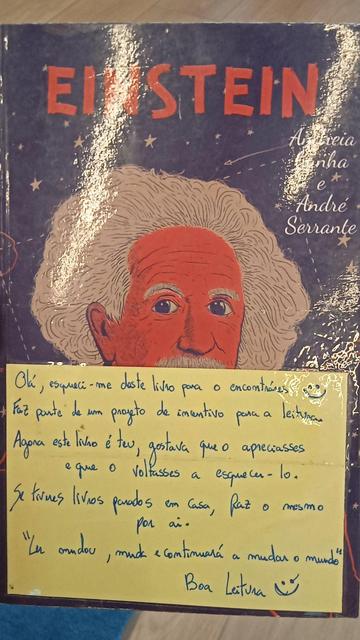 EINSTEIN
Andreia
Cunha
e
André
Serrante
Olá, esqueci-me deste livro para o encontrares
Faz parte de um projeto de incentivo para a leitura.
Agora este livro é teu, gostava que o apreciasses
e que o voltasses a esquecer-lo.
Se tiveres livros parados em casa, faz o mesmo
por aí.
"Ler mudou, muda e continuará a mudar o mundo"
Boa Leitura